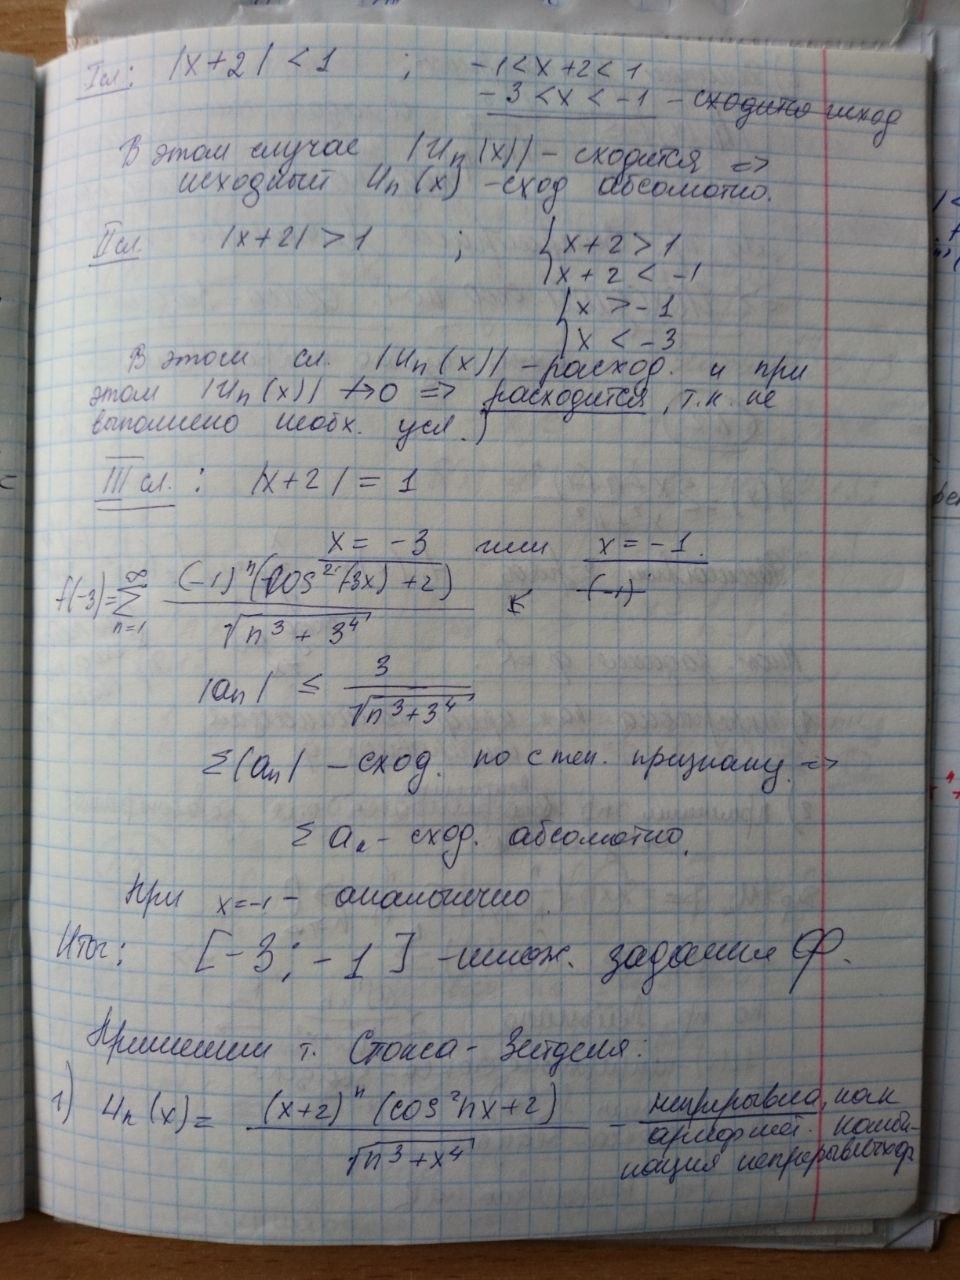 I сл: |x+2| < 1 ; -1 < x+2 < 1
-3 < x < -1 - сходится исход
В этом случае |Un(x)| - сходится =>
исходный Un(x) - сход абсолютно.
II сл. |x+2| > 1 ; { x+2 > 1
{ x+2 < -1
{ x > -1
{ x < -3
В этом сл. |Un(x)| - расход. и при
этом |Un(x)| ↛ 0 => расходится, т.к. не
выполнено необх. усл.)
III сл. : |x+2| = 1
x = -3 или x = -1.
f(-3) = ∑_{n=1}^{∞} (-1)^n (cos²(-3x) + 2) / √(n³ + 3⁴) (-1)
|an| ≤ 3 / √(n³+3⁴)
Σ|an| - сход. по степ. признаку =>
Σ an - сход. абсолютно.
При x=-1 - аналогично.
Итог: [-3; -1] - множ. задания ф.
Применим т. Стокса - Зейделя:
1) Un(x) = (x+2)^n (cos²nx+2) / √(n³+x⁴) - непрерывна, как
арифмет. комби-
нация непрерывных ф